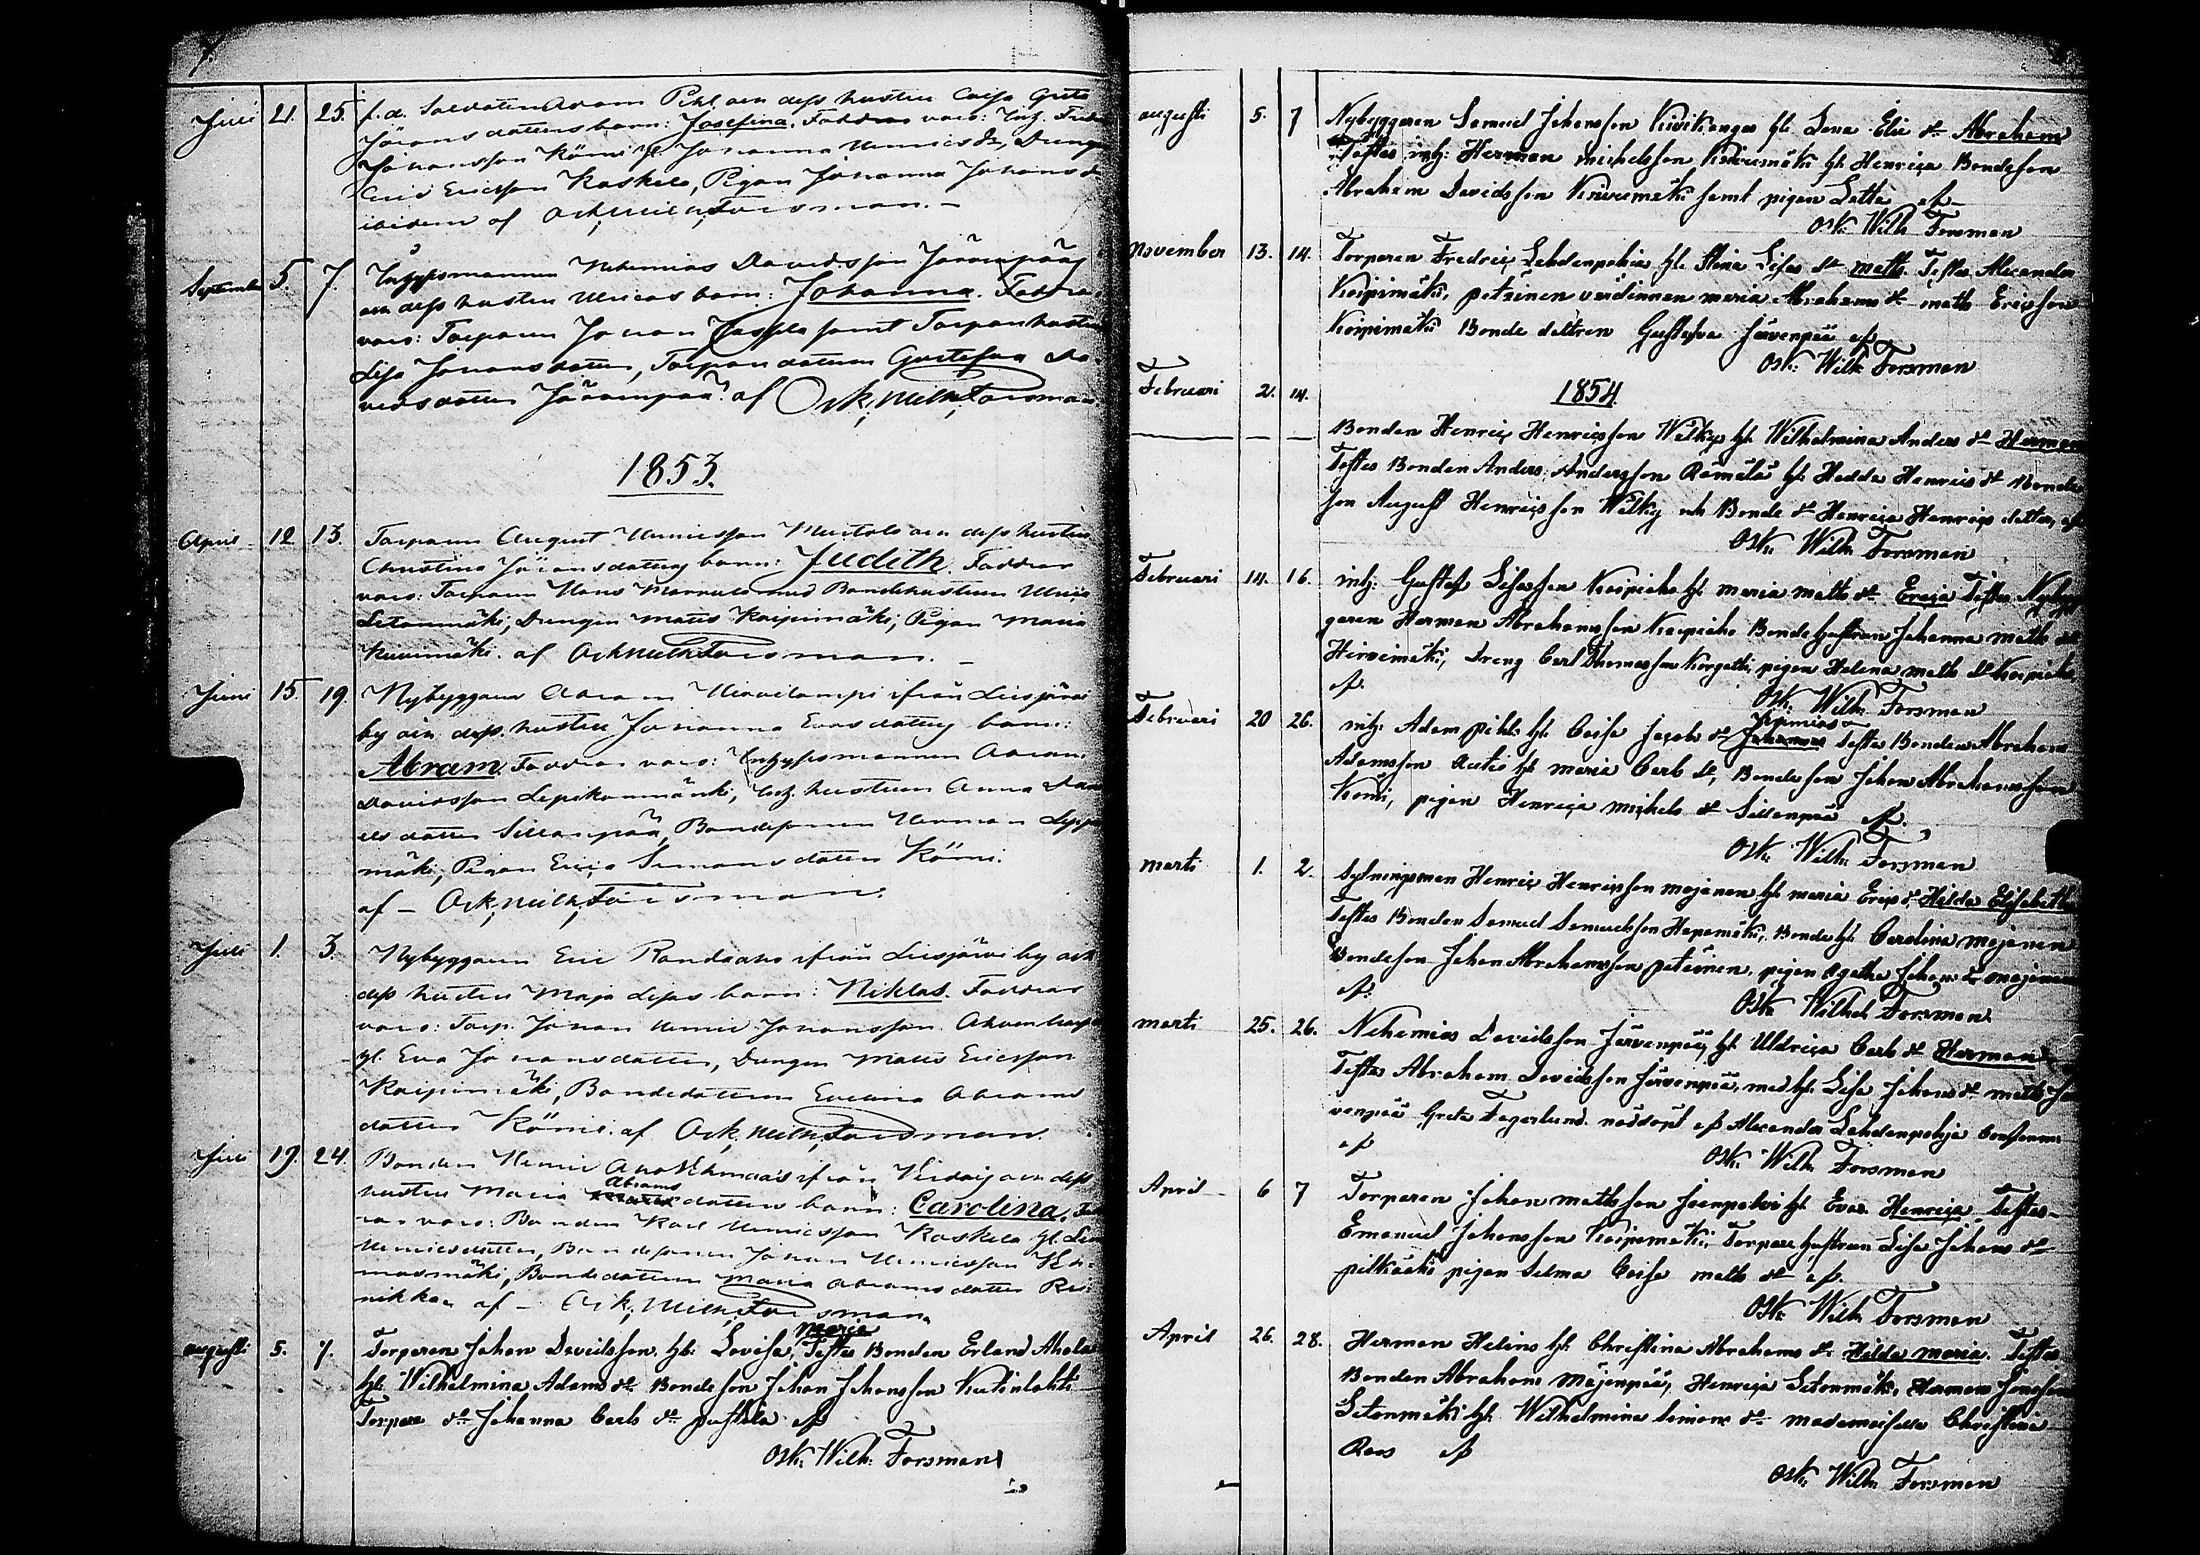 7.
Juli 21. 25. f. d. Soldaten Adam Pihl och dess hustru Caisa Greta
Jörans dotters barn: Josefina. Faddrar voro: Inh.
Johansson Körni hu. Johanna Henrics dr, Dreng
Ericsson Koskela, Pigan Johanna Johans d.
ibidem af Osk. Wilh. Forsman.
September 5. 7. Inhysesmannen Nehemias Davidsson Järvenpää
och dess hustru Ulricas barn: Johanna. Faddrar
voro: Torparen Johan samt Torparehustru
Lisa Johansdotter, Torparedottren Gustafva Da-
vidsdotter Järvenpää af Osk. Wilh. Forsman.
1853.
April 12 13. Torparen August Henricsson Mustola och dess hustru
Christina Jöransdotters barn: Judith. Faddrar
voro: Torparen Hans Mannula med Bondehustrun Ulrica
Setonmäki, Drengen Matts Koipimäki, Pigan Maria
Kivimäki. af Osk. Wilh. Forsman.
Juni 15 19. Nybyggaren Abram Hirvilampi ifrån Liesjärvi
by och dess hustru Johanna Evas dotters barn:
Abram. Faddrar voro: Inhysesmannen Abram
Davidsson Lepikonmäki, Inh. hustrun Anna Dani
els dotter Sillanpää, Bondesonen Herman Leppä
mäki, Pigan Erica Simonsdotter Körni.
af - Osk. Wilh. Forsman.
Juli 1. 3. Nybyggaren Eric Randaaho ifrån Liesjärvi by och
dess hustru Maja Lisas barn: Niklas. Faddrar
voro: Torp. Johan Henric Johansson
hu. Eva Johansdotter, Drengen Matts Ericsson
Koipimäki, Bondedottren Evelina Abrams
dotter Körni. af Osk. Wilh. Forsman.
Juli 19. 24. Bonden Henric ifrån Virdois och dess
Abrams
hustru Maria dotters barn: Carolina. Fadd
rar voro: Bonden Karl Henricsson Koskela hu. Lisa
Henricsdotter, Bondesonen Johan Henricsson
masmäki, Bondedottren Maria Abramsdotter
nikka af - Osk. Wilh. Forsman.
Maria
augusti 5. 7. Torparen Johan Davidsson, hu. Lovisa, Testes Bonden Erland Ahola
hu. Wilhelmina Adams dr. Bondeson Johan Johansson Kivinlahti
Torpare dr Johanna Carls dr Pustila af
Osk. Wilh. Forsman
augusti 5. 7 Nybyggaren Samuel Johansson Kivikangas hu. Lena Elie dr Abraham
Testes inh. Herman Michelsson Kivimäki hu. Henrica Bondeson
Abraham Davidsson Kivimäki samt pigan Lotta af
Osk. Wilh. Forsman
November 13. 14. Torparen Fredric Lehdenpohja hu. Stina Lisas dr Matts. Testes Alexander
Koipimäki, Petäinen värdinnan Maria Abrahams dr Matts Ericsson
Koipimäki Bonde dottren Gustafva Järvenpää af
Osk. Wilh. Forsman
1854
Februari 2. 14. Bonden Henric Henricsson Wälky hu. Wilhelmina Anders dr Herman
Testes Bonden Anders Andersson Rämälä hu. Hedda Henrics dr Bonde
son August Henricsson Wälky och Bonde dr Henrica Henrics dotter, af
Osk. Wilh. Forsman
Februari 14. 16. inh. Gustaf Lisasson Koipiaho hu. Maria Matts dr Erica Testes Nybyg-
garen Herman Abrahamsson Koipiaho Bonde hustrun Johanna Matts dr
Hirvimäki, Dreng Carl Thomasson pigan Helena Matts dr Koipiaho
af.
Osk. Wilh. Forsman
Jeremias
Februari 20 26. inh. Adam Pihl hu. Caisa Jacobs dr Johannes Testes Bonden Abraham
Adamsson Autio hu. Maria Carls dr, Bondeson Johan Abrahamsson
Körni, pigan Henrica Michels dr Sillanpää af.
Osk. Wilh. Forsman
Marti 1. 2. Sytningsman Henric Henricsson Mojanen hu. Maria Erics dr Hilda Elisabeth
Testes Bonden Samuel Samuelsson Hapamäki, Bonde hu. Carolina Mojanen
Bondeson Johan Abrahamsson Petäinen, pigan Agatha Johans dr Mojanen
af.
Osk. Wilhel. Forsman
Marti 25. 26. Nehemias Davidsson Järvenpää, hu. Uldrica Carls dr Herman
Testes Abraham Davidsson Järvenpää, med hu. Lisa Johans dr Matts Jär
venpää Greta Fagerlund. nöddöpt af Alexander Lehdenpohja
af
Osk. Wilh. Forsman
April 6 7 Torparen Johan Mattsson Joenpolvi hu. Evas Henrica Testes
Emanuel Johansson Koipimäki, Torpare hustrun Lisa Johans dr
pigan Selma Caisa Matts dr af.
Osk. Wilh. Forsman
April 26. 28. Herman Helins hu. Christina Abrahams dr Hilda Maria. Testes
Bonden Abraham Mäjenpää, Henrica Setonmäki, Herman
Setonmäki hu. Wilhelmina Simons dr mademoiselle Christina
Roos af
Osk. Wilh. Forsman